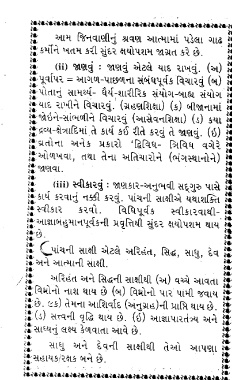 આમ જિનવાણીનું શ્રવણ આત્મામાં પડેલા ગાઢ
કર્મોને ખતમ કરી સુંદર ક્ષયોપશમ જાગ્રત કરે છે.
(ii) જાણવું : જાણવું એટલે યાદ રાખવું. (અ)
પૂર્વાપર = આગળ-પાછળના સંબંધપૂર્વક વિચારવું (બ)
પોતાનું સામર્થ્ય- ધૈર્ય-શારીરિક સંયોગ-બાહ્ય સંયોગ
યાદ રાખીને વિચારવું. (ગ્રહણશિક્ષા) (ક) બીજાનામાં
જોઇને-સાંભળીને વિચારવું (આસેવનશિક્ષા) (ડ) કયા
દ્રવ્ય-ક્ષેત્રાદિમાં તે કાર્ય કઈ રીતે કરવું તે જાણવું. (ઇ)
વ્રતોના અનેક પ્રકારો 'દ્વિવિધ- ત્રિવિધ વગેરે
ઓળખવા, તથા તેના અતિચારોને (ભંગસ્થાનોને)
જાણવા.
(iii) સ્વીકારવું : જાણકાર-અનુભવી સદ્ગુરુ પાસે
કાર્ય કરવાનું નક્કી કરવું. પાંચની સાક્ષીએ યથાશક્તિ
સ્વીકાર કરવો. વિધિપૂર્વક સ્વીકારવાથી-
આજ્ઞાબહુમાનપૂર્વકની પ્રવૃત્તિથી સુંદર ક્ષયોપશમ થાય
છે.
પાંચની સાક્ષી એટલે અરિહંત, સિદ્ધ, સાધુ, દેવ
અને આત્માની સાક્ષી.
અરિહંત અને સિદ્ધની સાક્ષીથી (અ) વચ્ચે આવતા
વિઘ્નોનો નાશ થાય છે (બ) વિઘ્નોનો પાર પામી જવાય
છે. (ક) તેમના આશિર્વાદ (અનુગ્રહ)ની પ્રાપ્તિ થાય છે.
(ડ) સત્ત્વની વૃદ્ધિ થાય છે. (ઇ) આજ્ઞાપારતંત્ર્ય અને
સાધ્યનું લક્ષ્ય કેળવાતા આવે છે.
સાધુ અને દેવની સાક્ષીથી તેઓ આપણા
સહાયક/રક્ષક બને છે.